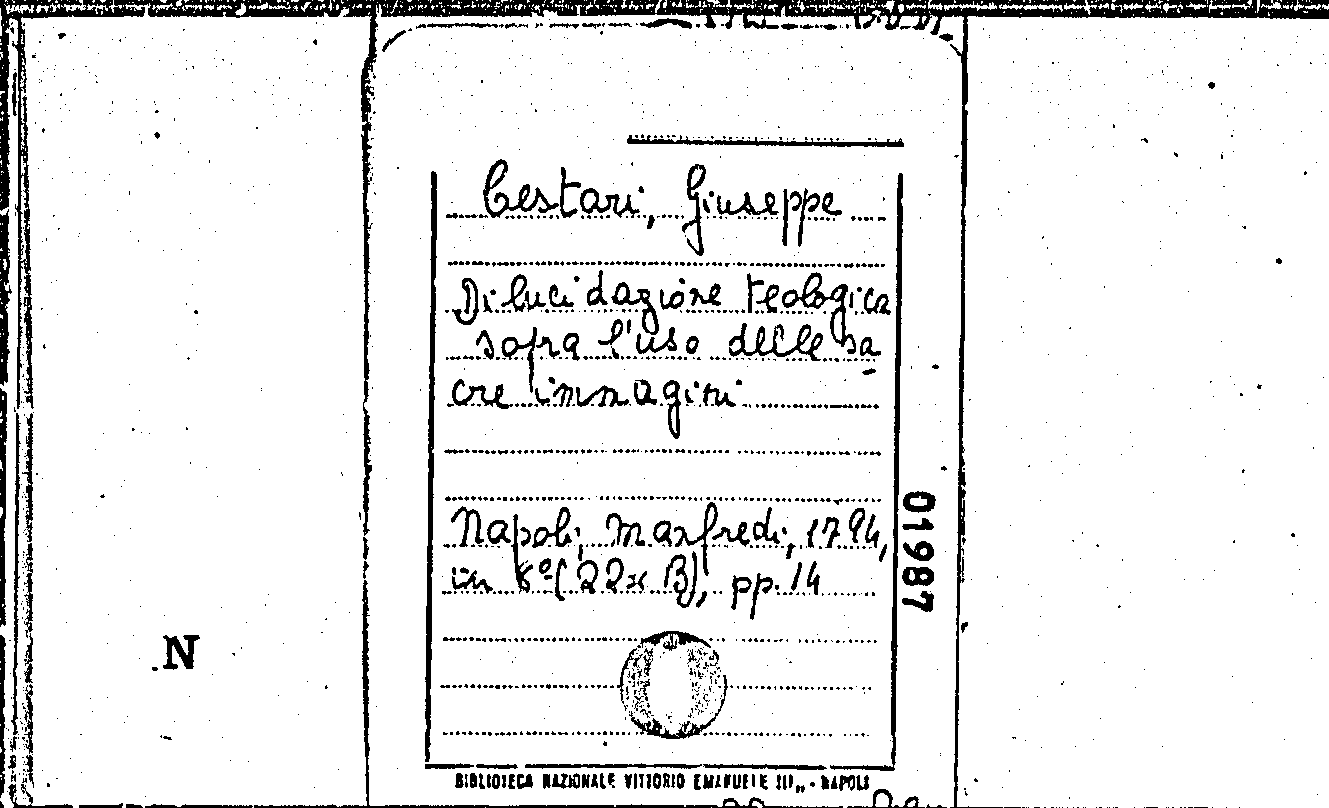 Cestari, Giuseppe
Dilucidazione teologica
sopra l'uso delle sa
cre immagini
Napoli, Manfredi, 1794,
in 8º (22x13), pp. 14
01987
N
BIBLIOTECA NAZIONALE VITTORIO EMANUELE III„ - NAPOLI